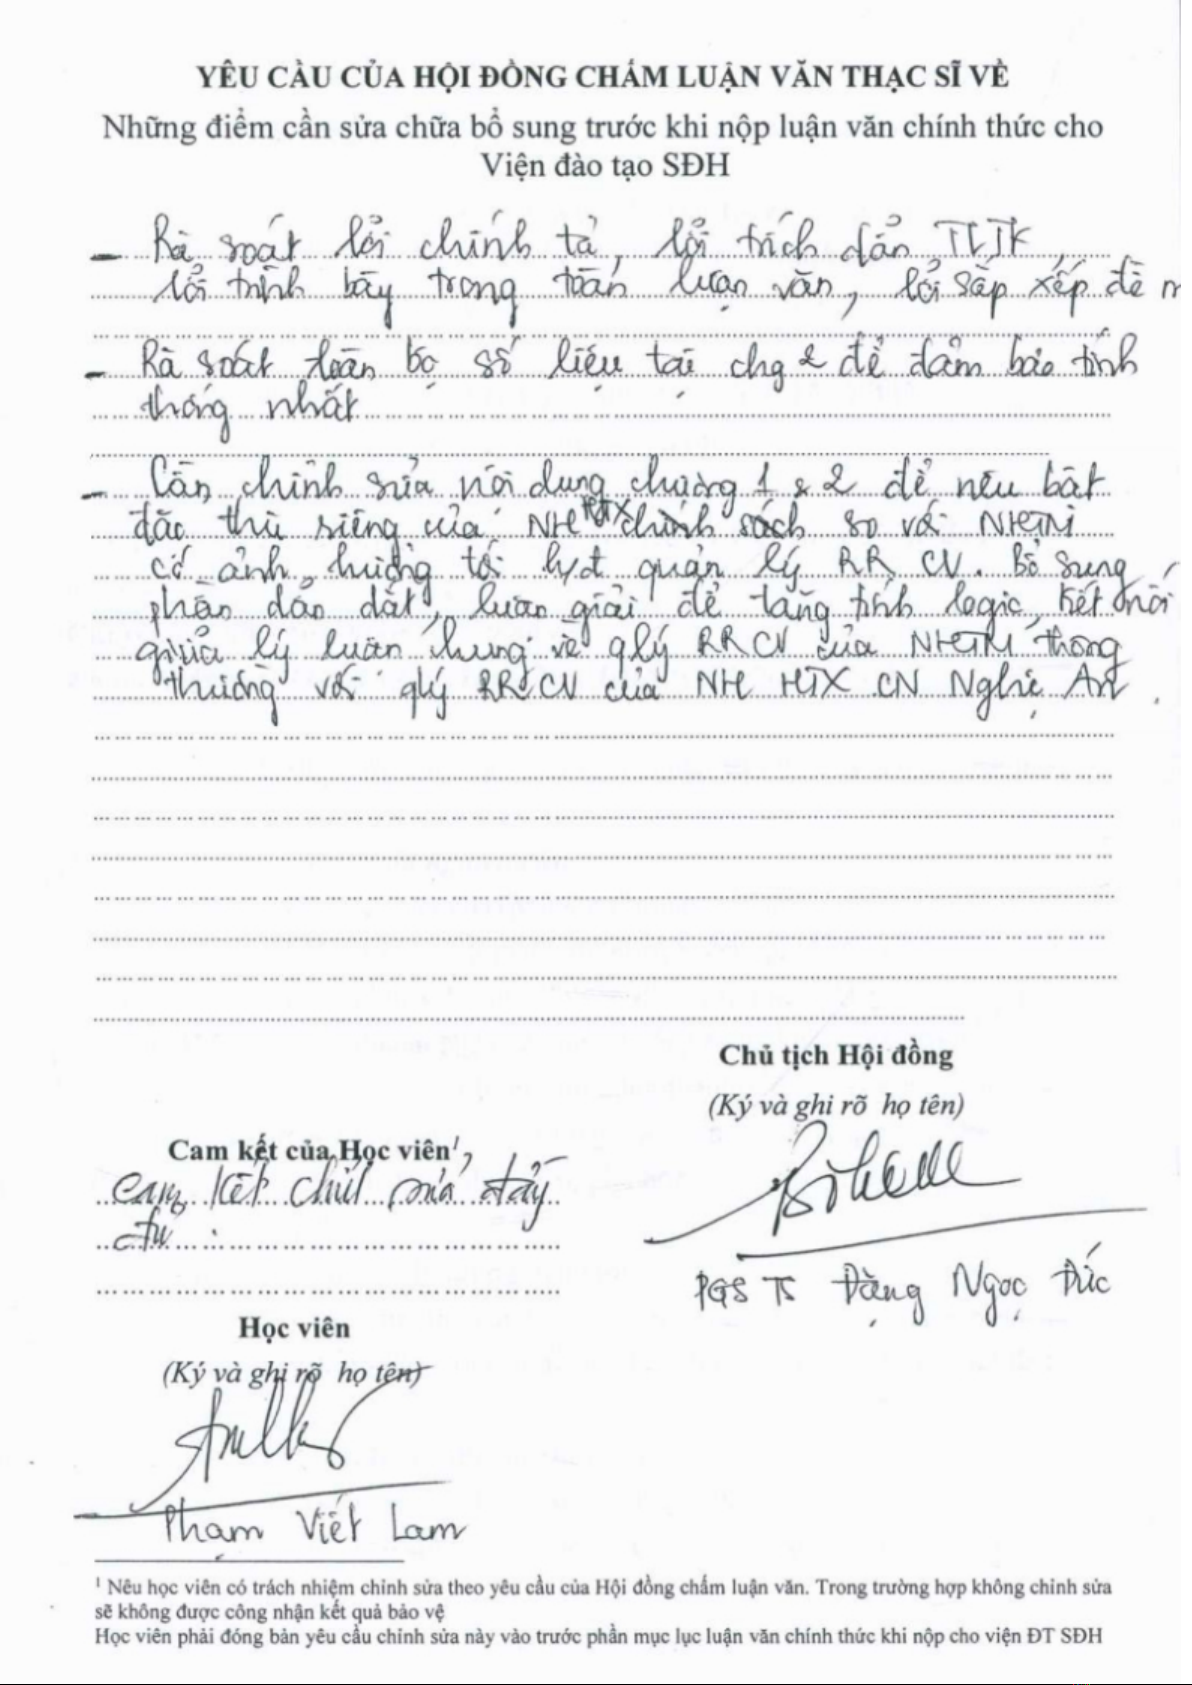 YÊU CẦU CỦA HỘI ĐỒNG CHẤM LUẬN VĂN THẠC SĨ VỀ
Những điểm cần sửa chữa bổ sung trước khi nộp luận văn chính thức cho
Viện đào tạo SĐH
- Rà soát lỗi chính tả, lỗi trích dẫn TLTK
lỗi trình bày trong toàn luận văn, lỗi sắp xếp đề m
- Rà soát toàn bộ số liệu tại chg 2 để đảm bảo tính
thống nhất
- Cần chỉnh sửa nội dung chương 1 & 2 để nêu bật
đặc thù riêng của NH HTX chính sách so với NHTM
có ảnh hưởng tới hđ quản lý RR CV. Bổ sung
phần dẫn dắt, luận giải để tăng tính logic kết nối
giữa lý luận chung về qlý RRCV của NHTM thông
thường với qlý RRCV của NH HTX CN Nghệ An.
Chủ tịch Hội đồng
(Ký và ghi rõ họ tên)
Cam kết của Học viên¹
Cam kết chỉnh sửa đầy
đủ.
PGS TS Đặng Ngọc Đức
Học viên
(Ký và ghi rõ họ tên)
Phạm Viết Lam
¹ Nêu học viên có trách nhiệm chỉnh sửa theo yêu cầu của Hội đồng chấm luận văn. Trong trường hợp không chỉnh sửa
sẽ không được công nhận kết quả bảo vệ
Học viên phải đóng bản yêu cầu chỉnh sửa này vào trước phần mục lục luận văn chính thức khi nộp cho viện ĐT SĐH